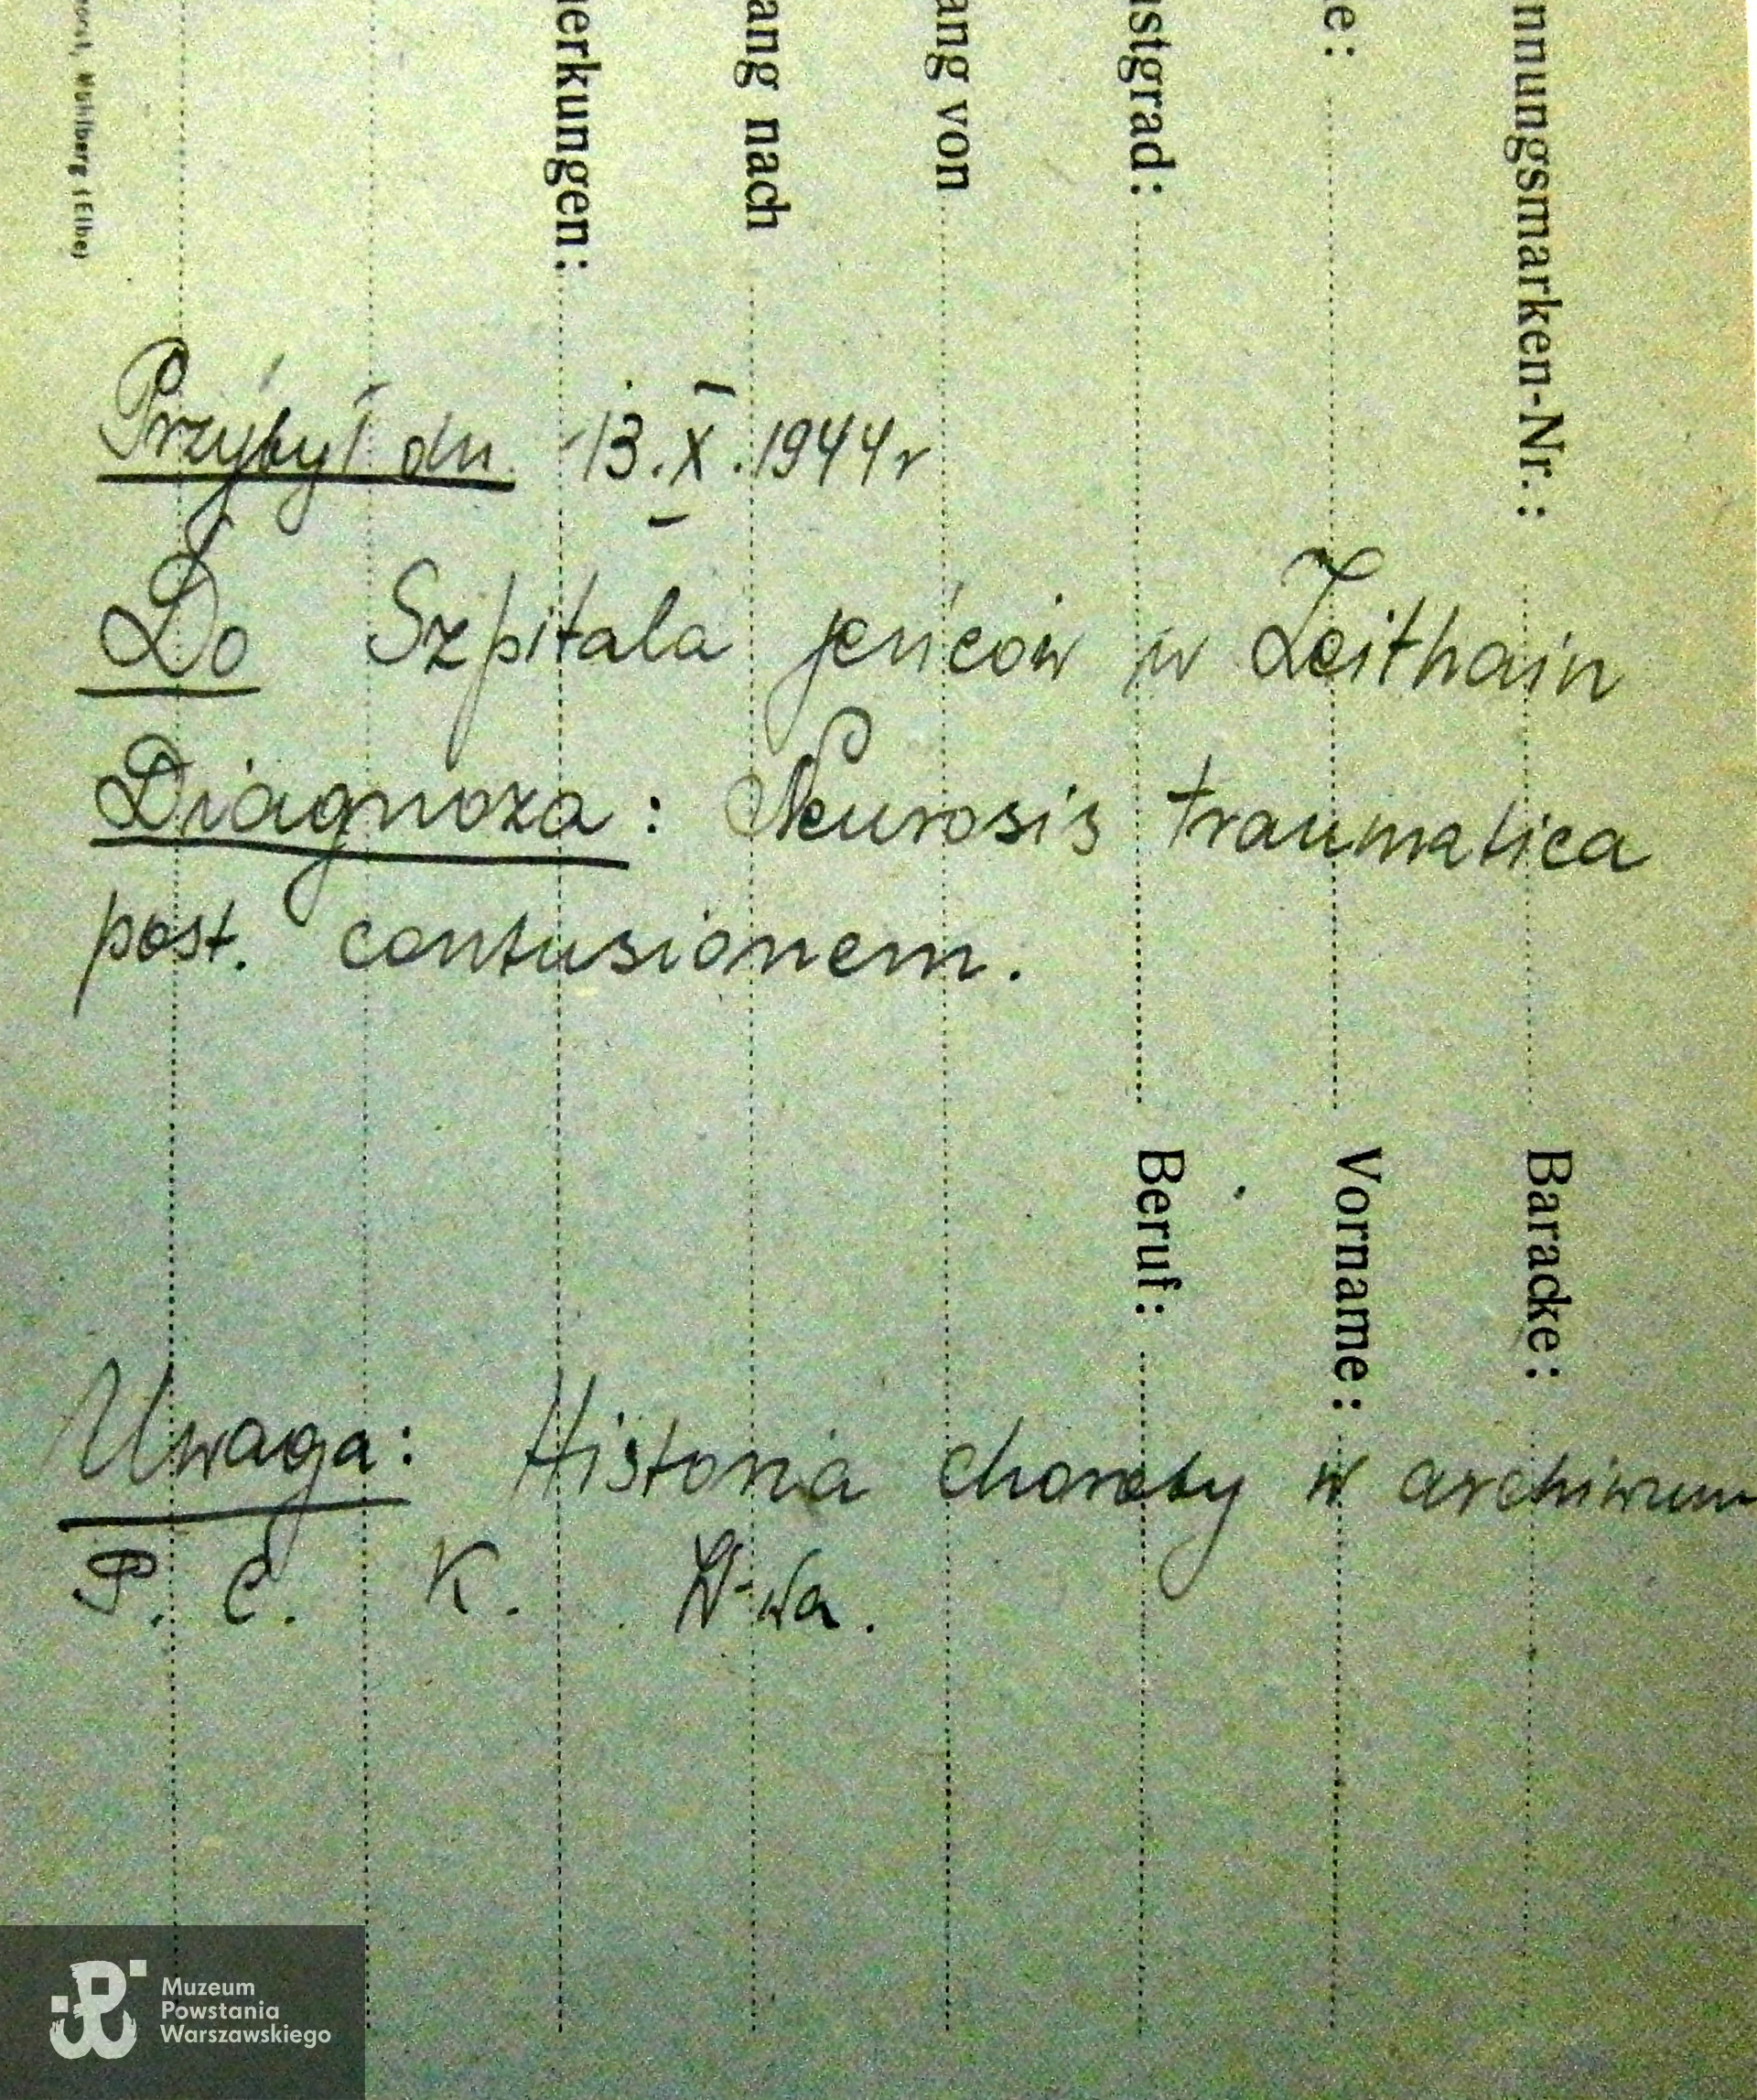 Przybył dn. 13.X.1944r
Do Szpitala jeńców w Zeithain
Diagnoza: Neurosis traumatica
post. contusionem.
Uwaga: Historia choroby w archiwum
P. C. K. W-wa.
nnungsmarken-Nr.: Baracke:
e: Vorname:
nstgrad: Beruf:
ang von
ang nach
erkungen:
Mühlberg (Elbe)
Muzeum
Powstania
Warszawskiego